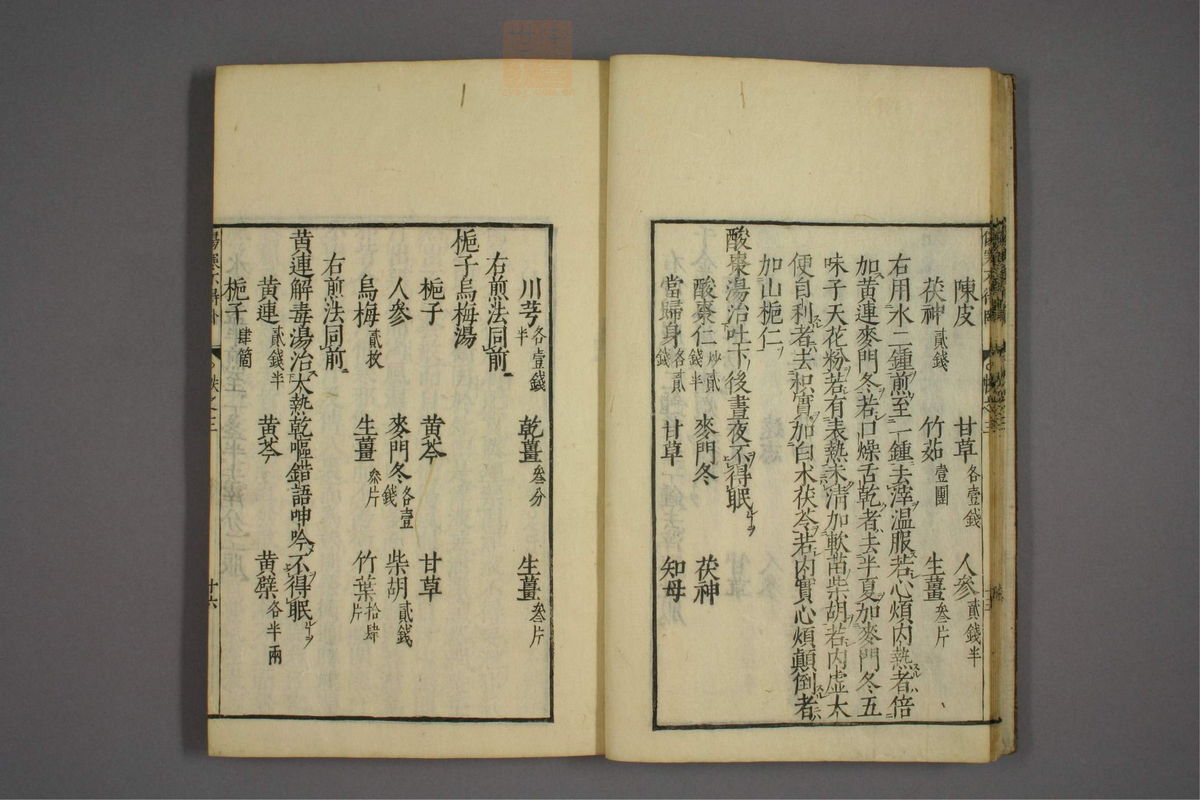 陳皮 甘草各壹錢 人參貳錢半
茯神貳錢 竹茹壹團 生薑叁片
右用水二鍾煎至一鍾去滓溫服若心煩內熱者倍
加黃連麥門冬若口燥舌乾者去半夏加麥門冬五
味子天花粉若有表熱未清加軟苗柴胡若內虛大
便自利者去枳實加白朮茯苓若內實心煩顛倒者
加山梔仁
酸棗湯治吐下後晝夜不得眠
酸棗仁炒貳錢半 麥門冬 茯神
當歸身各貳錢 甘草 知母
川芎各壹錢半 乾薑叁分 生薑叁片
右煎法同前
梔子烏梅湯
梔子 黃芩 甘草
人參 麥門冬各壹錢 柴胡貳錢
烏梅貳枚 生薑叁片 竹葉拾肆片
右煎法同前
黃連解毒湯治大熱乾嘔錯語呻吟不得眠
黃連貳錢半 黃芩 黃檗各半兩
梔子肆箇
十六